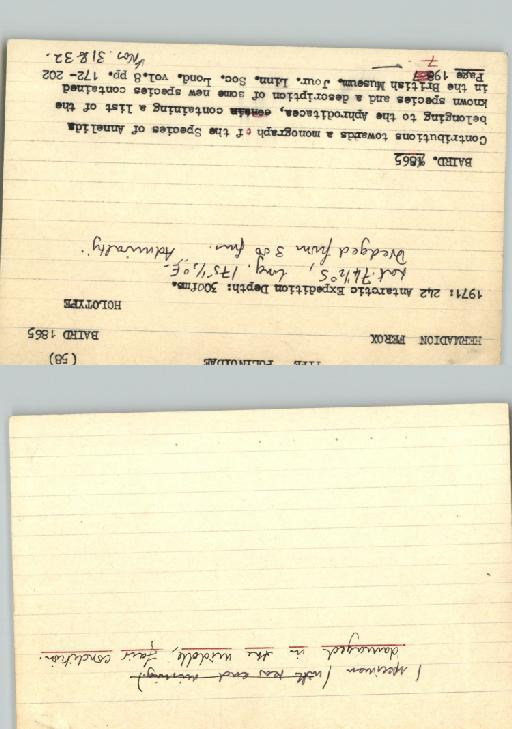 TYPE POLYNOIDAE (58)
HERMADION FEROX BAIRD 1865
HOLOTYPE
1971: 242 Antarctic Expedition Depth: 300fms.
Lat. 74½°S, Long. 175½°E.
Dredged from 300 fms. Admiralty
BAIRD. 1865
Contributions towards a monograph of the Species of Annelids
belonging to the Aphroditacea, containing a list of the
known species and a description of some new species contained
in the British Museum. Jour. Linn. Soc. Lond. vol.8 pp. 172-202
Page 198
7
Nos. 31 & 32.
1 specimen (with pos end missing)
damaged in the middle, fair condition.